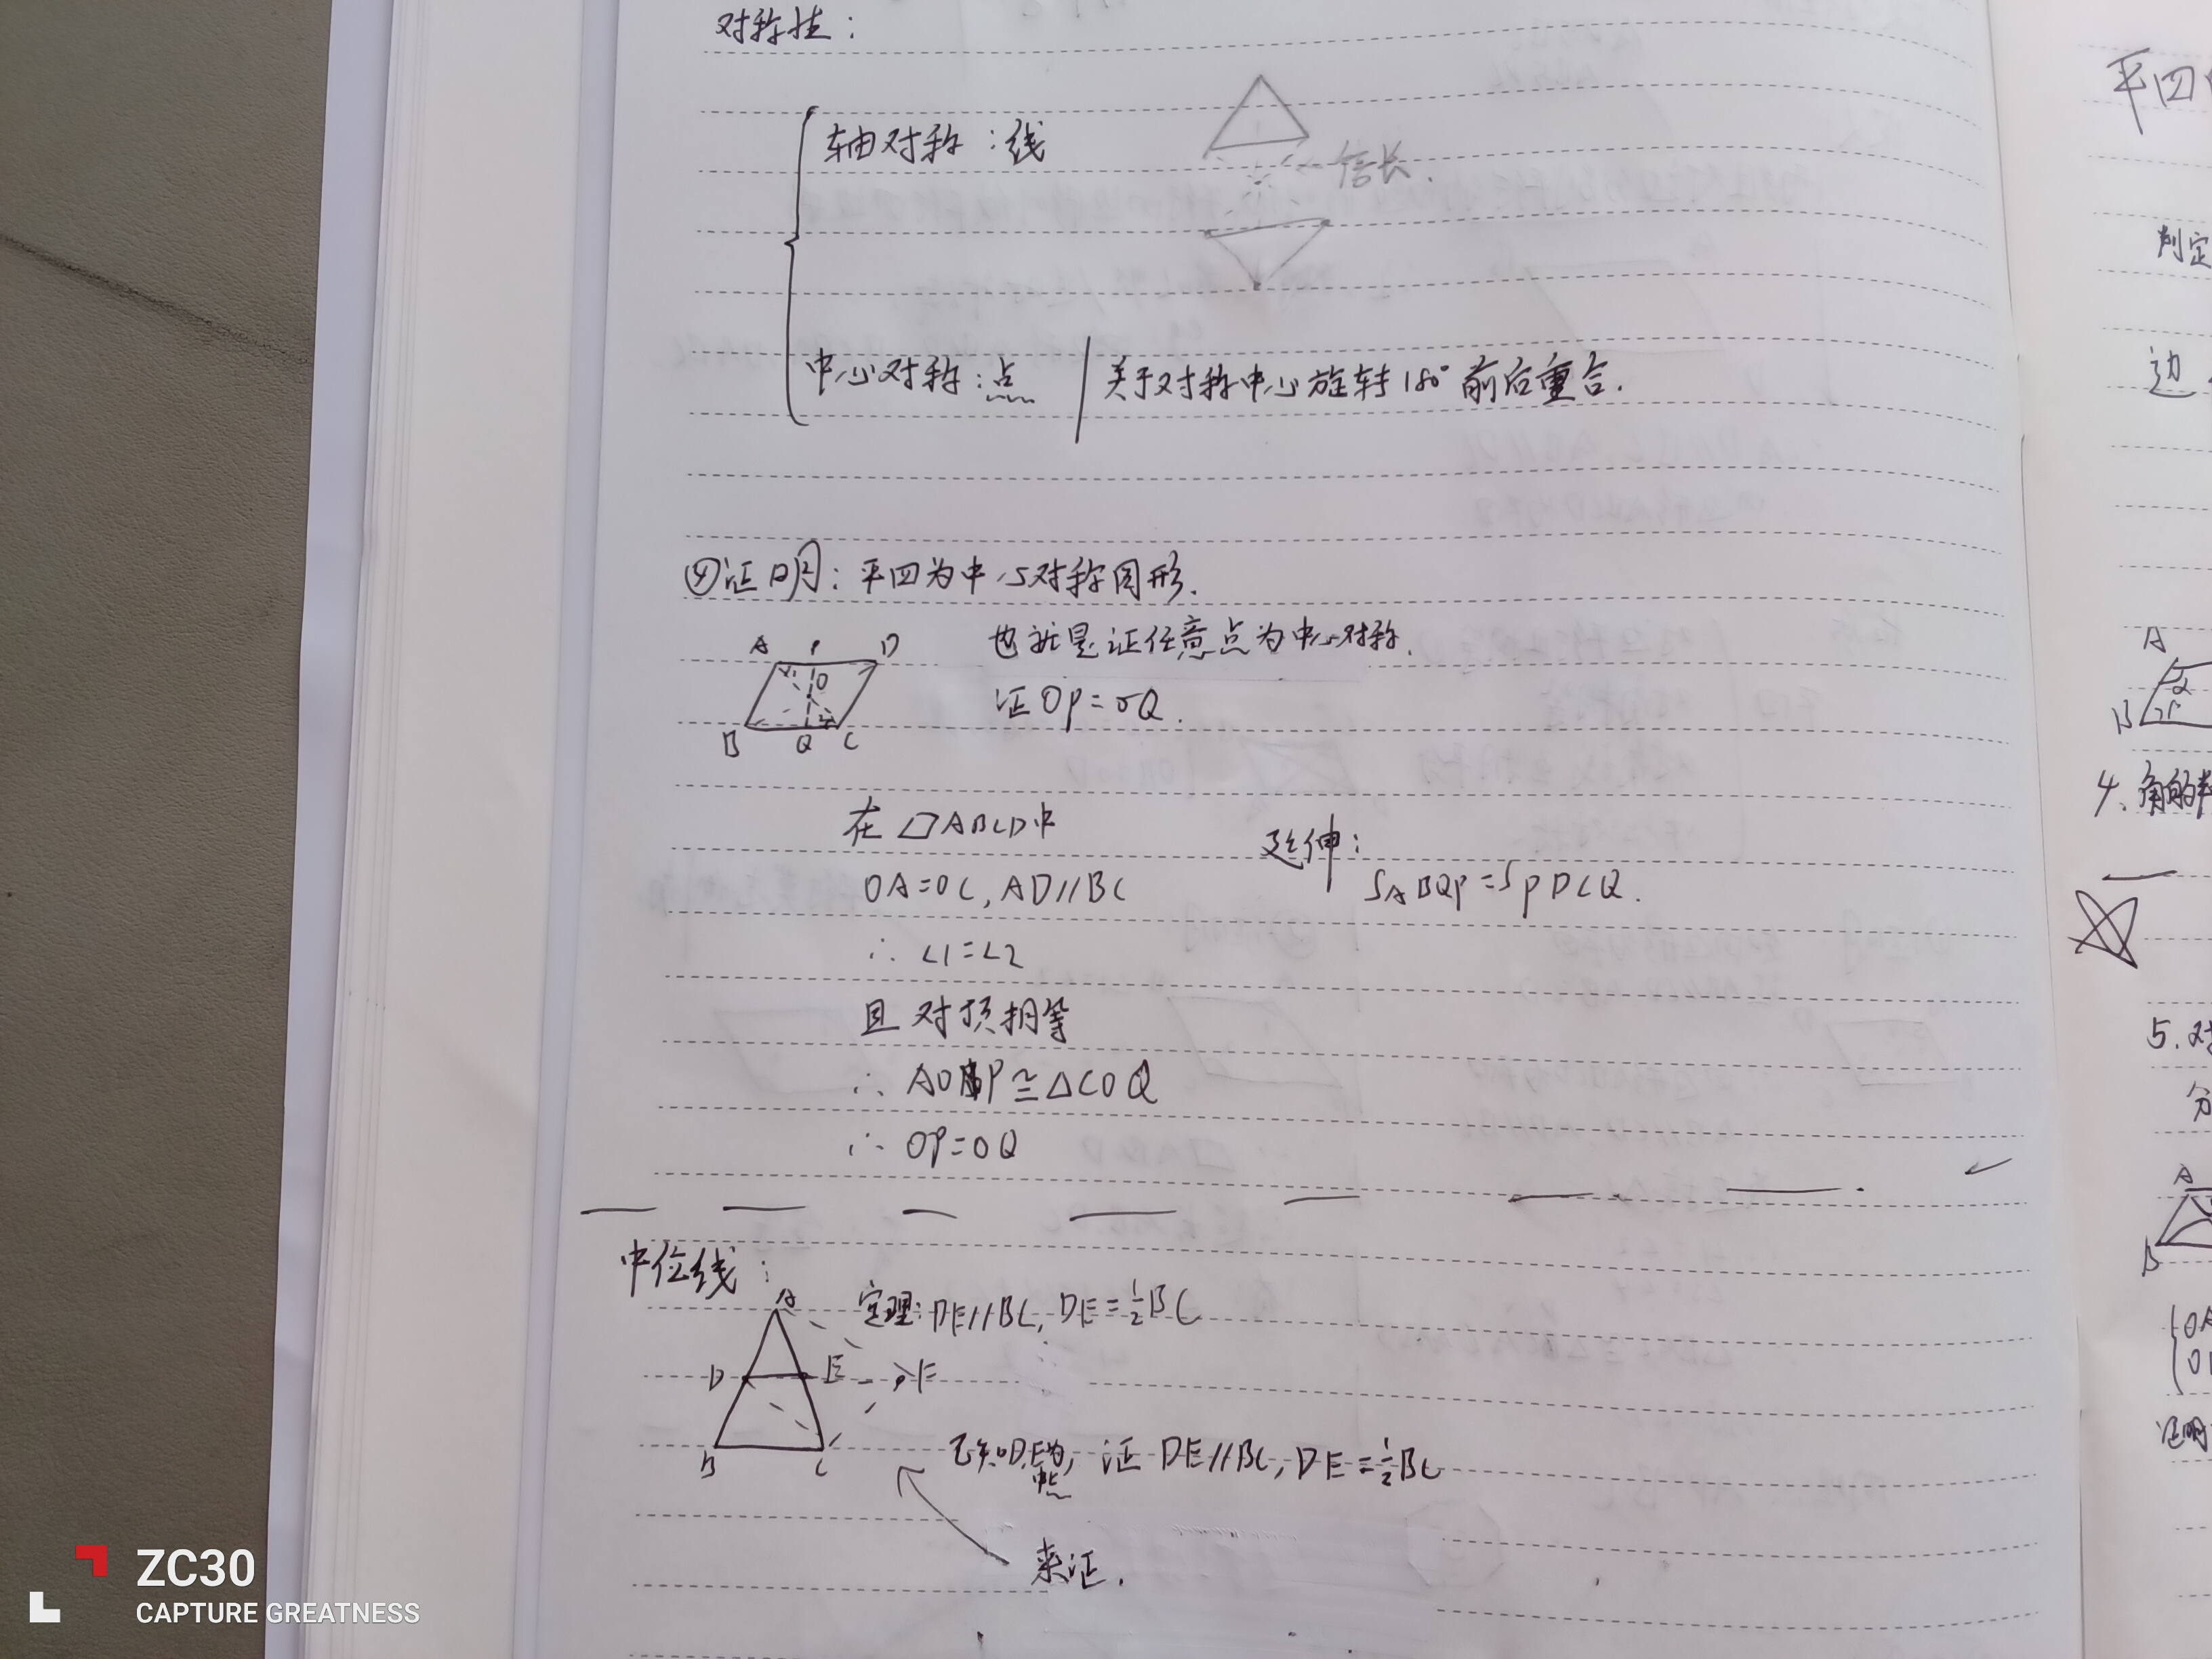 对称性：
轴对称：线
倍长.
中心对称：点 关于对称中心旋转180°前后重合.
④证明：平四为中心对称图形.
A P D
O
B Q C
也就是证任意点为中心对称.
证OP=OQ.
在▱ABCD中
OA=OC, AD//BC
∴ ∠1=∠2
且对顶相等
∴ AOP≌△COQ
∴ OP=OQ
延伸：
SABQP=SPDCQ.
中位线：
定理: DE//BC, DE=½BC
A
D E F
B C
已知D,E为中点, 证DE//BC, DE=½BC
来证.
平四
判定
边
A
B
4、角的判
5.对
分
A
B
OA
O
证明
ZC30
CAPTURE GREATNESS